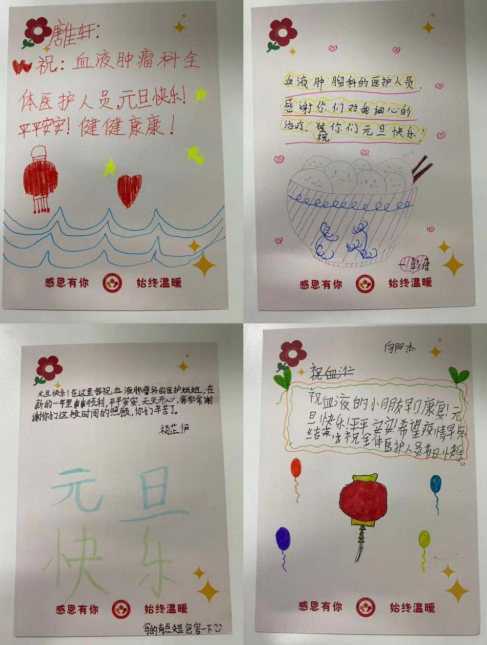 唐隹轩:
祝:血液肿瘤科全
体医护人员,元旦快乐!
平平安安!健健康康!
感恩有你 始终温暖
血液肿瘤科的医护人员,
感谢你们对我细心的
治疗,祝你们元旦快乐!
感恩有你 始终温暖
元旦快乐!在这里祝血液肿瘤科的医护姐姐,在
新的一年里顺利,平平安安 天天开心,
谢你们这段时间的照顾,你们辛苦了。
元旦
快乐
感恩有你 始终温暖
写的有点丑 包容一下
祝血液的小朋友早日康复!元
旦快乐!平平安安!希望疫情早点
结束,祝全体医护人员节日快乐
感恩有你 始终温暖